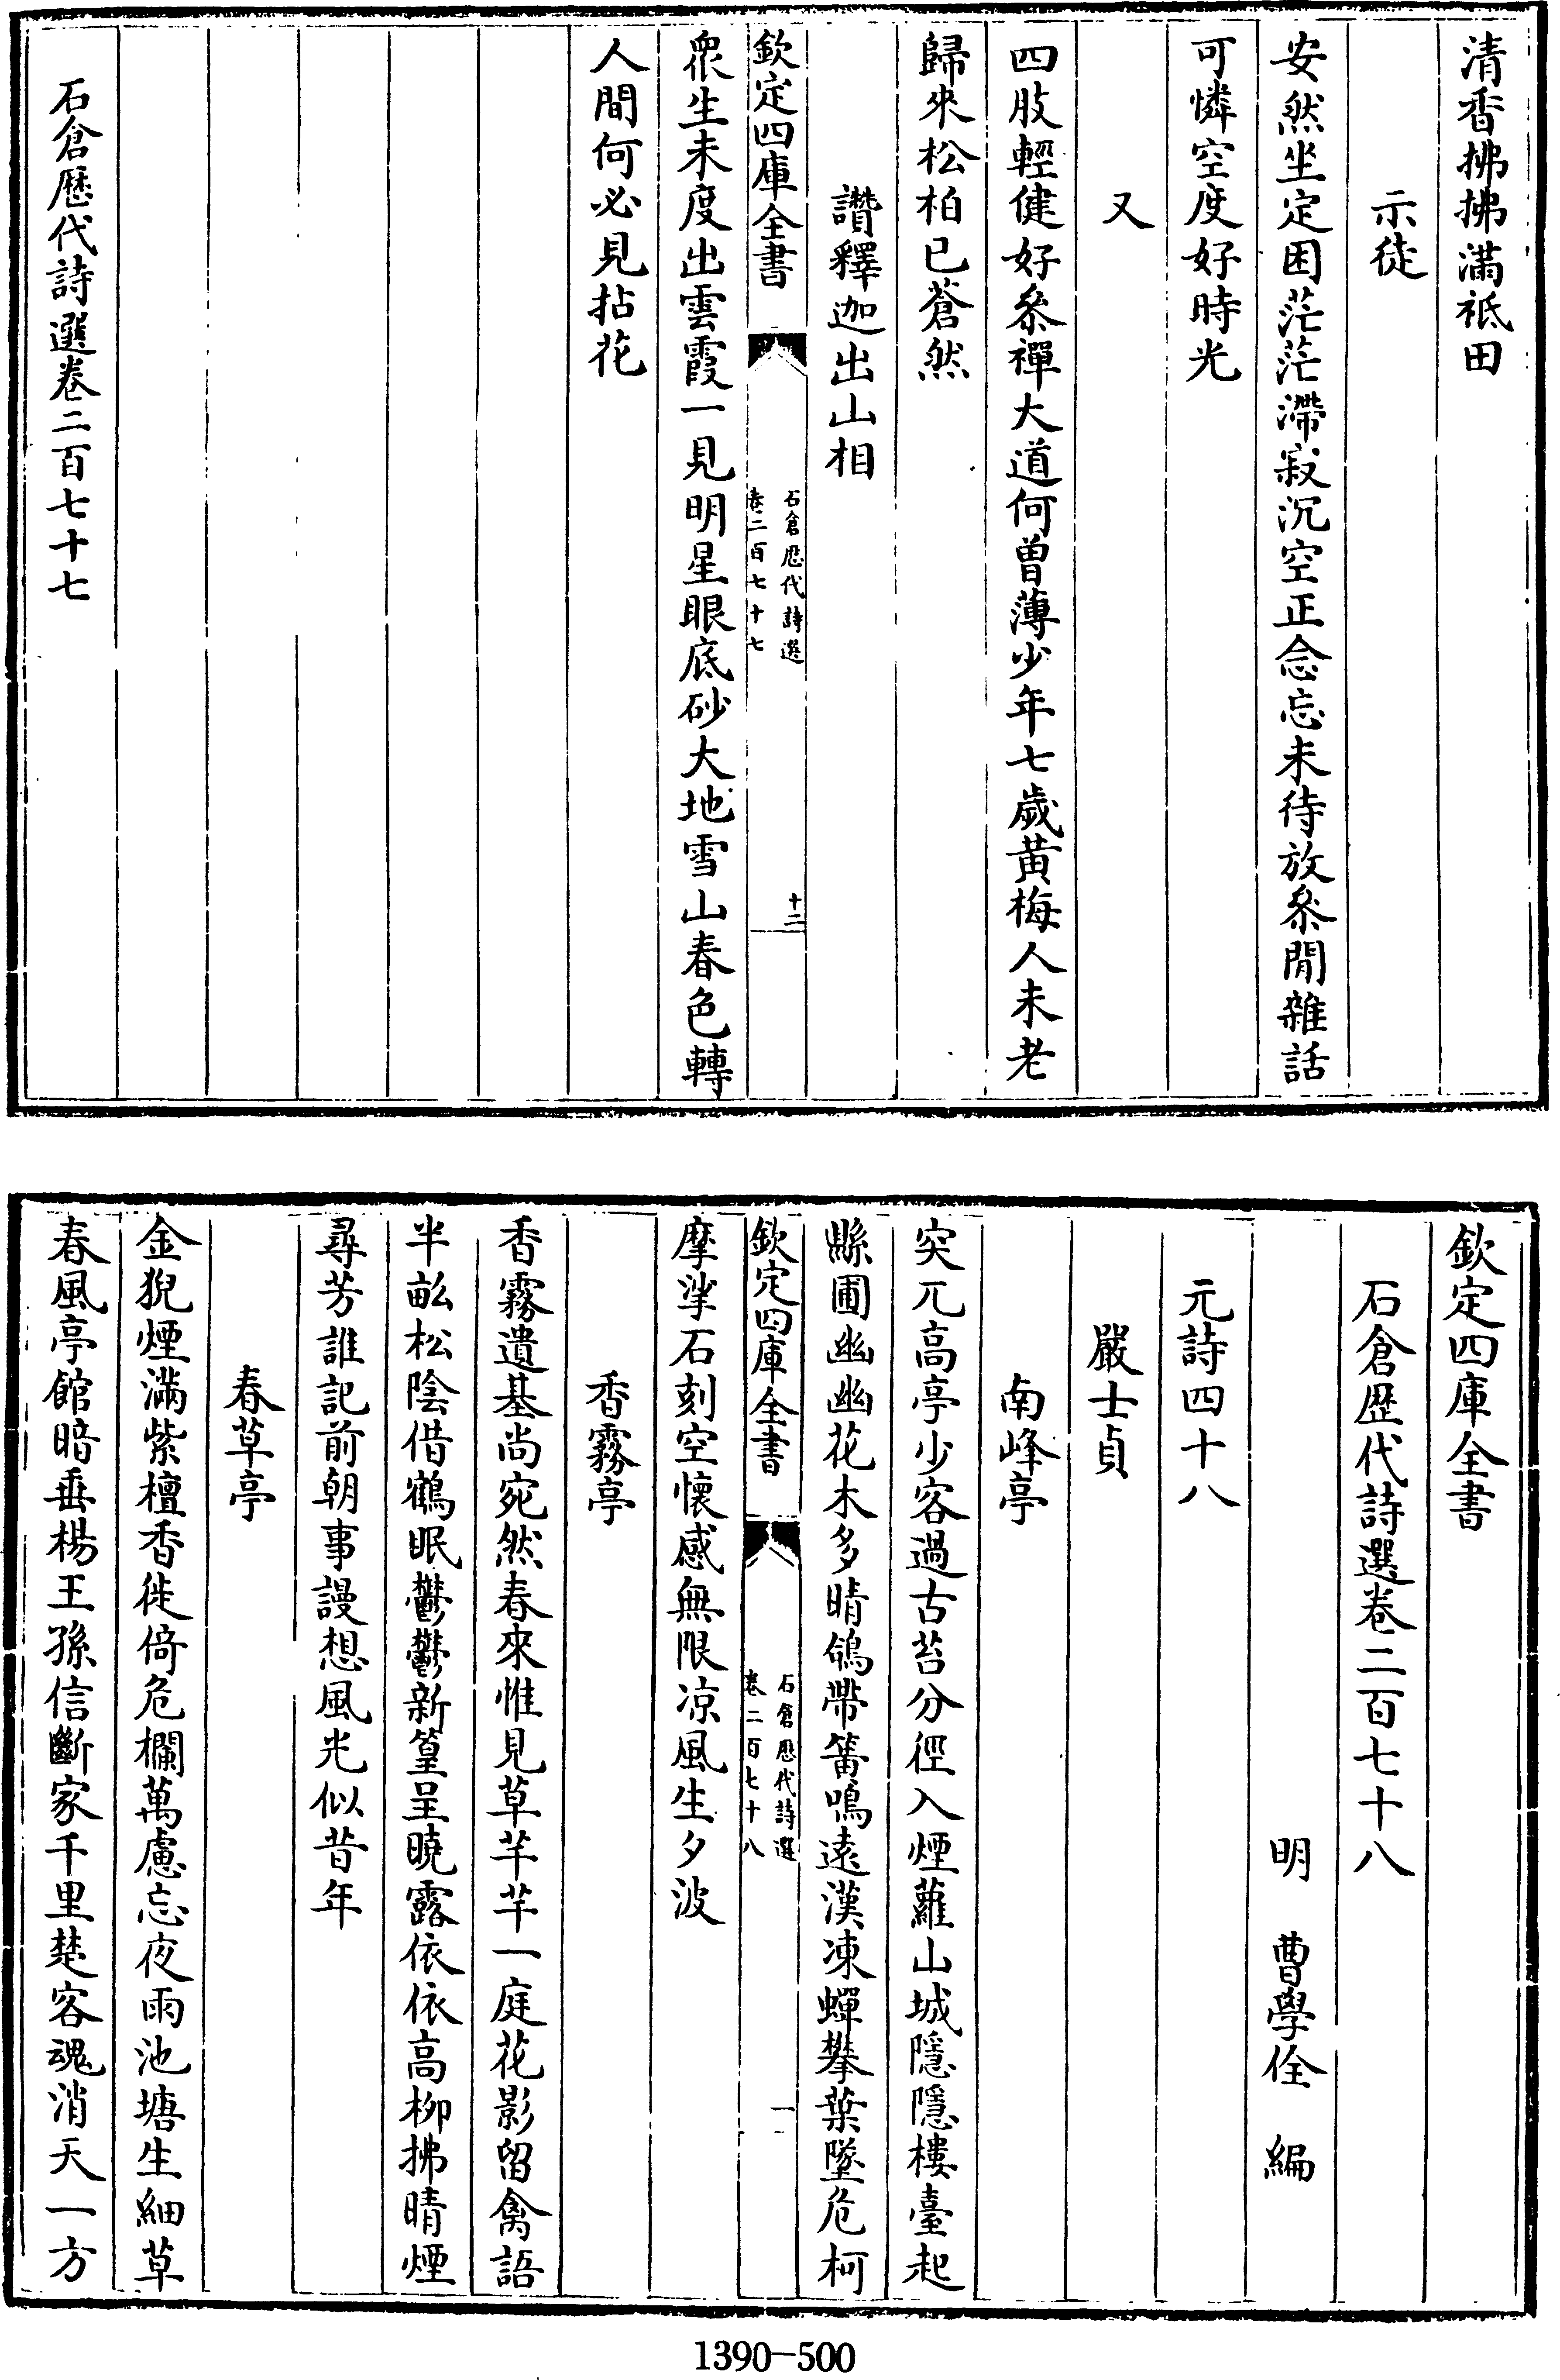 清香拂拂滿祗田
示徒
安然坐定困茫茫滯寂沉空正念忘未待放叅閒雜話
可憐空度好時光
又
四肢輕健好叅禪大道何曾薄少年七歲黄梅人未老
歸來松柏已蒼然
讚釋迦出山相
欽定四庫全書
石倉歷代詩選
卷二百七十七
十二
衆生未度出雲霞一見明星眼底砂大地雪山春色轉
人間何必見拈花
石倉歷代詩選卷二百七十七
欽定四庫全書
石倉歷代詩選卷二百七十八
明 曹學佺 編
元詩四十八
嚴士貞
南峰亭
突兀高亭少客過古苔分徑入煙蘿山城隱隱樓臺起
縣圃幽幽花木多晴鴿帶箭鳴遠漢凍蟬攀葉墜危柯
欽定四庫全書
石倉歷代詩選
卷二百七十八
一
摩挲石刻空懷感無限凉風生夕波
香霧亭
香霧遺基尚宛然春來惟見草芊芊一庭花影留禽語
半畝松陰借鶴眠鬱鬱新篁呈曉露依依高柳拂晴煙
尋芳誰記前朝事謾想風光似昔年
春草亭
金猊煙滿紫檀香徙倚危欄萬慮忘夜雨池塘生細草
春風亭館暗垂楊王孫信斷家千里楚客魂消天一方
1390-500